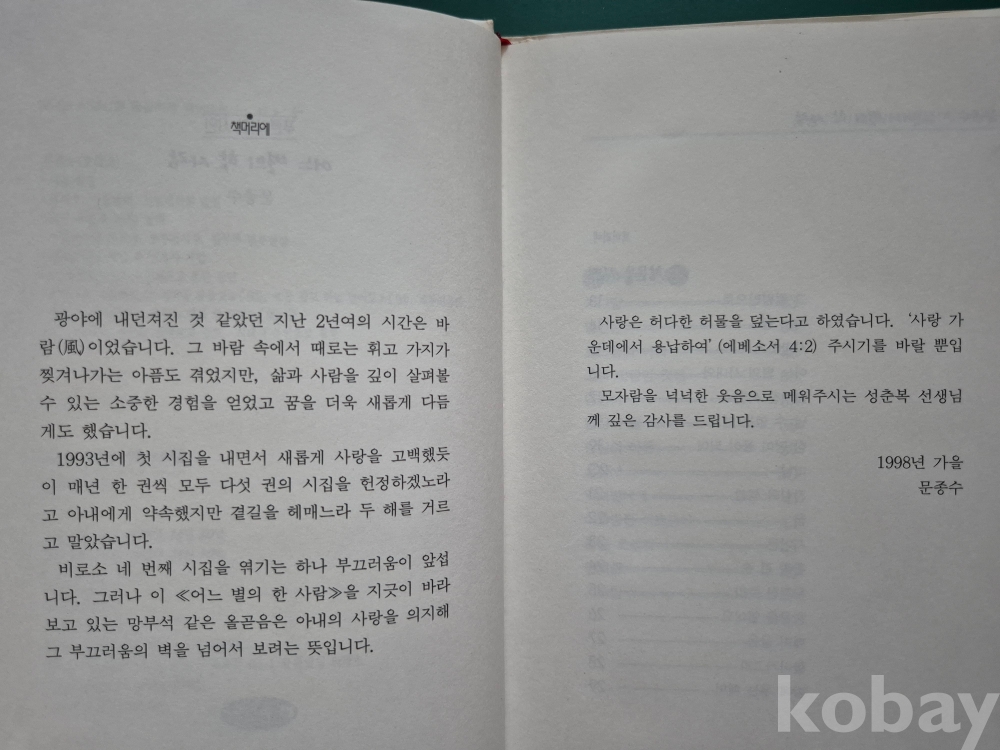 책머리에
광야에 내던져진 것 같았던 지난 2년여의 시간은 바
람(風)이었습니다. 그 바람 속에서 때로는 휘고 가지가
찢겨나가는 아픔도 겪었지만, 삶과 사람을 깊이 살펴볼
수 있는 소중한 경험을 얻었고 꿈을 더욱 새롭게 다듬
게도 했습니다.
1993년에 첫 시집을 내면서 새롭게 사랑을 고백했듯
이 매년 한 권씩 모두 다섯 권의 시집을 헌정하겠노라
고 아내에게 약속했지만 곁길을 헤매느라 두 해를 거르
고 말았습니다.
비로소 네 번째 시집을 엮기는 하나 부끄러움이 앞섭
니다. 그러나 이 ≪어느 별의 한 사람≫을 지긋이 바라
보고 있는 망부석 같은 올곧음은 아내의 사랑을 의지해
그 부끄러움의 벽을 넘어서 보려는 뜻입니다.
사랑은 허다한 허물을 덮는다고 하였습니다. ‘사랑 가
운데에서 용납하여’(에베소서 4:2) 주시기를 바랄 뿐입
니다.
모자람을 넉넉한 웃음으로 메워주시는 성춘복 선생님
께 깊은 감사를 드립니다.
1998년 가을
문종수
kobay